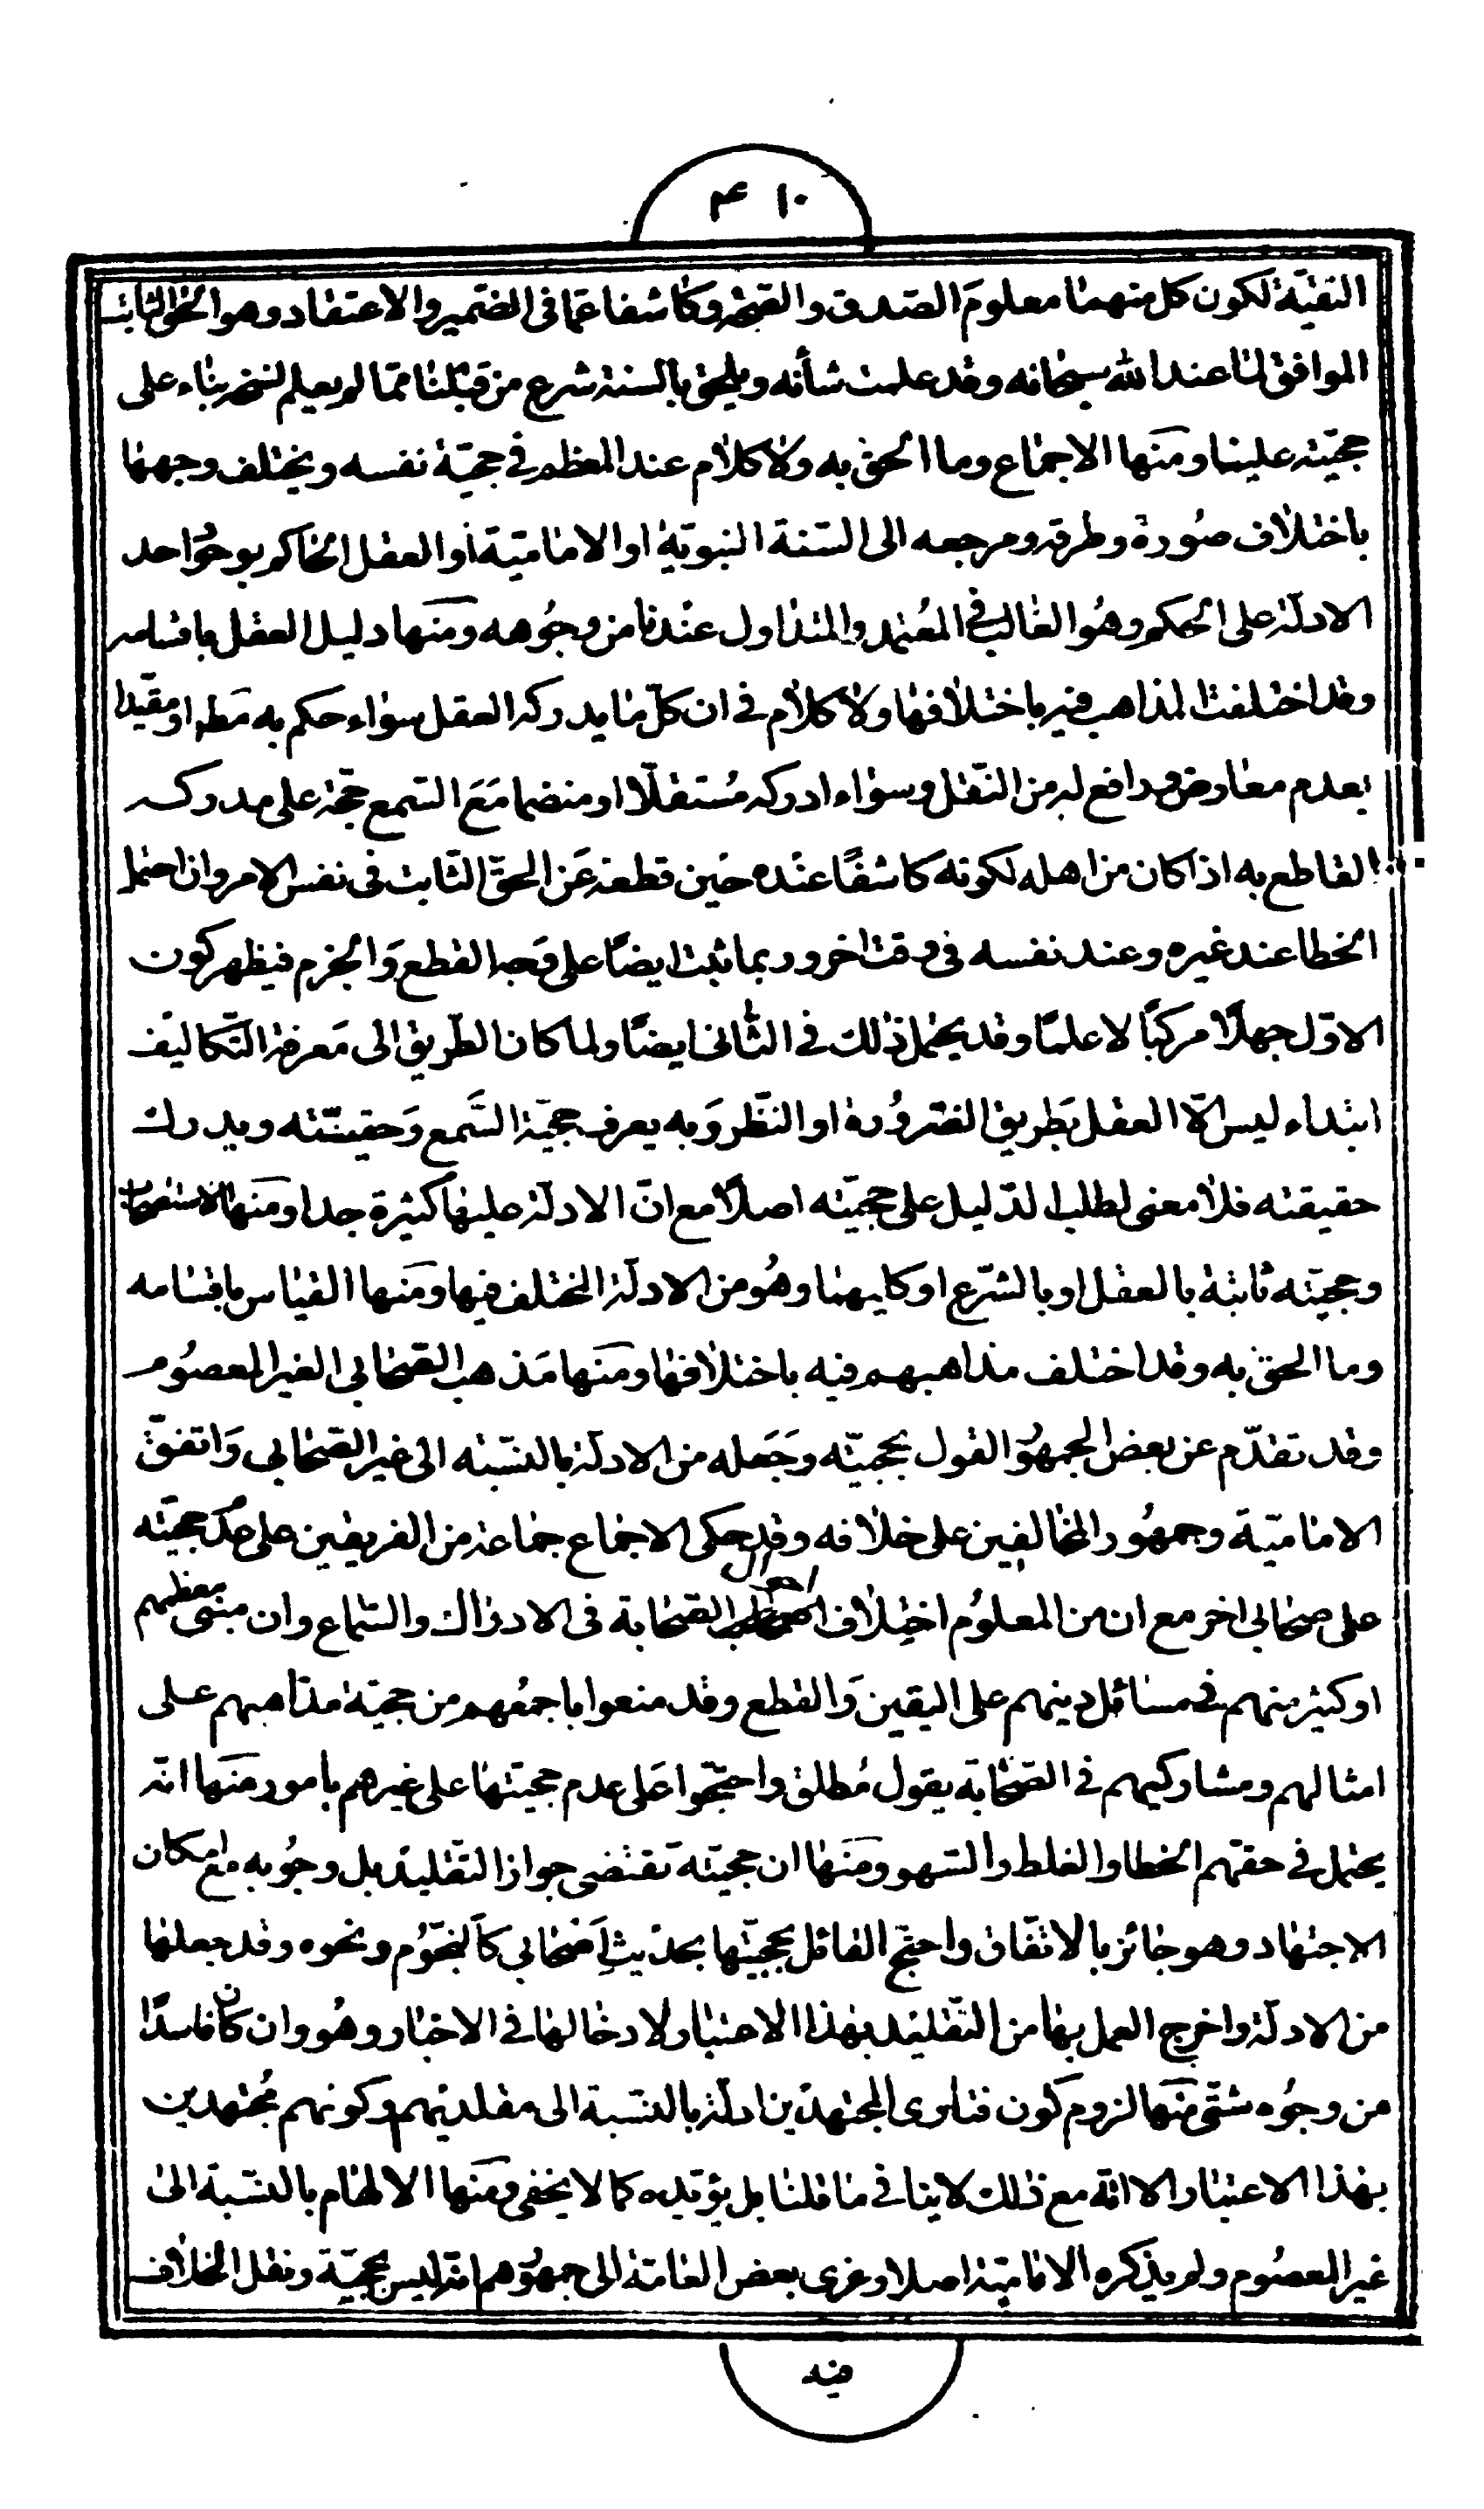 ٤١٠
التقية لكون كل منهما معلوم الصدق والقبح وكاشفا عما فى الضمير والاعتقاد وهو الحق الثابت
الموافق لما عند الله سبحانه وقد علمت شأنه ويلحق بالسنة شرع من قبلنا مما لم يعلم نسخه بناء على
حجيته علينا ومنها الاجماع وما الحق به ولا كلام عند المعظم في حجية نفسه ويختلف وجهها
باختلاف صوره وطرقه ومرجعه الى السنة النبوية او الامامية او العقل الحاكم بوجود احد
الادلة على الحكم وهو الغالب في المعتمد والمتداول عندنا من وجوهه ومنها دليل العقل باقسامه
وقد اختلفت المذاهب فيه باختلافها ولا كلام في ان كل ما يدركه العقل سواء حكم به مط او مقيدا
بعدم معارض ومدافع له من النقل وسواء ادركه مستقلا او منضما مع السمع حجة على مدركه
القاطع به اذا كان من اهله لكونه كاشفا عنده حين قطعه عن الحق الثابت فى نفس الامر وان احتمل
الخطا عند غيره وعند نفسه فى وقت اخر وربما يثبت ايضا على وجه القطع والجزم فيظهر كون
الاول جهلا مركبا لا علما وقد يحتمل ذلك في الثانى ايضا ولما كان الطريق الى معرفة التكاليف
ابتداء ليس الا العقل بطريق الضرورة او النظر وبه يعرف حجية السمع وحقيته ويدرك
حقيقته فلا معنى لطلب الدليل على حجيته اصلا مع ان الادلة عليها كثيرة جدا ومنها الاستصحاب
وحجيته ثابتة بالعقل او بالشرع او كليهما وهو من الادلة المختلف فيها ومنها القياس باقسامه
وما الحق به وقد اختلف مذاهبهم فيه باختلافها ومنها مذهب الصحابي الغير المعصوم
وقد تقدم عن بعض الجمهور القول بحجيته وجعله من الادلة بالنسبة الى غير الصحابي واتفق
الامامية وجمهور المخالفين على خلافه وقد حكى الاجماع جماعة من الفريقين على عدم حجيته
على صحابي اخر مع ان من المعلوم اختلاف احوال الصحابة فى الادراك والسماع وان مبنى معظمهم
او كثير منهم فى مسائل دينهم على اليقين والقطع وقد منعوا باجمعهم من حجية مذاهبهم على
امثالهم ومشاركيهم في الصحابة بقول مطلق واحتجوا على عدم حجيتها على غيرهم بامور منها انه
يحتمل في حقهم الخطا والغلط والسهو ومنها ان حجيته تقتضى جواز التقليد بل وجوبه مع امكان
الاجتهاد وهو جائز بالاتفاق واحتج القائل بحجيتها بحديث اصحابي كالنجوم ونحوه وقد جعلها
من الادلة واخرج العمل بها من التقليد بهذا الاعتبار ولادخالها في الاخبار وهو وان كان فاسدا
من وجوه شتى منها لزوم كون فتاوى المجتهدين ادلة بالنسبة الى مقلديهم وكونهم مجتهدين
بهذا الاعتبار الا انه مع ذلك لا ينافى ما قلنا بل يؤيده كما لا يخفى ومنها الالهام بالنسبة الى
غير المعصوم ولم يذكره الامامية اصلا وعزى بعض العامة الى جمهورهم انه ليس بحجية ونقل الخلاف
فيه